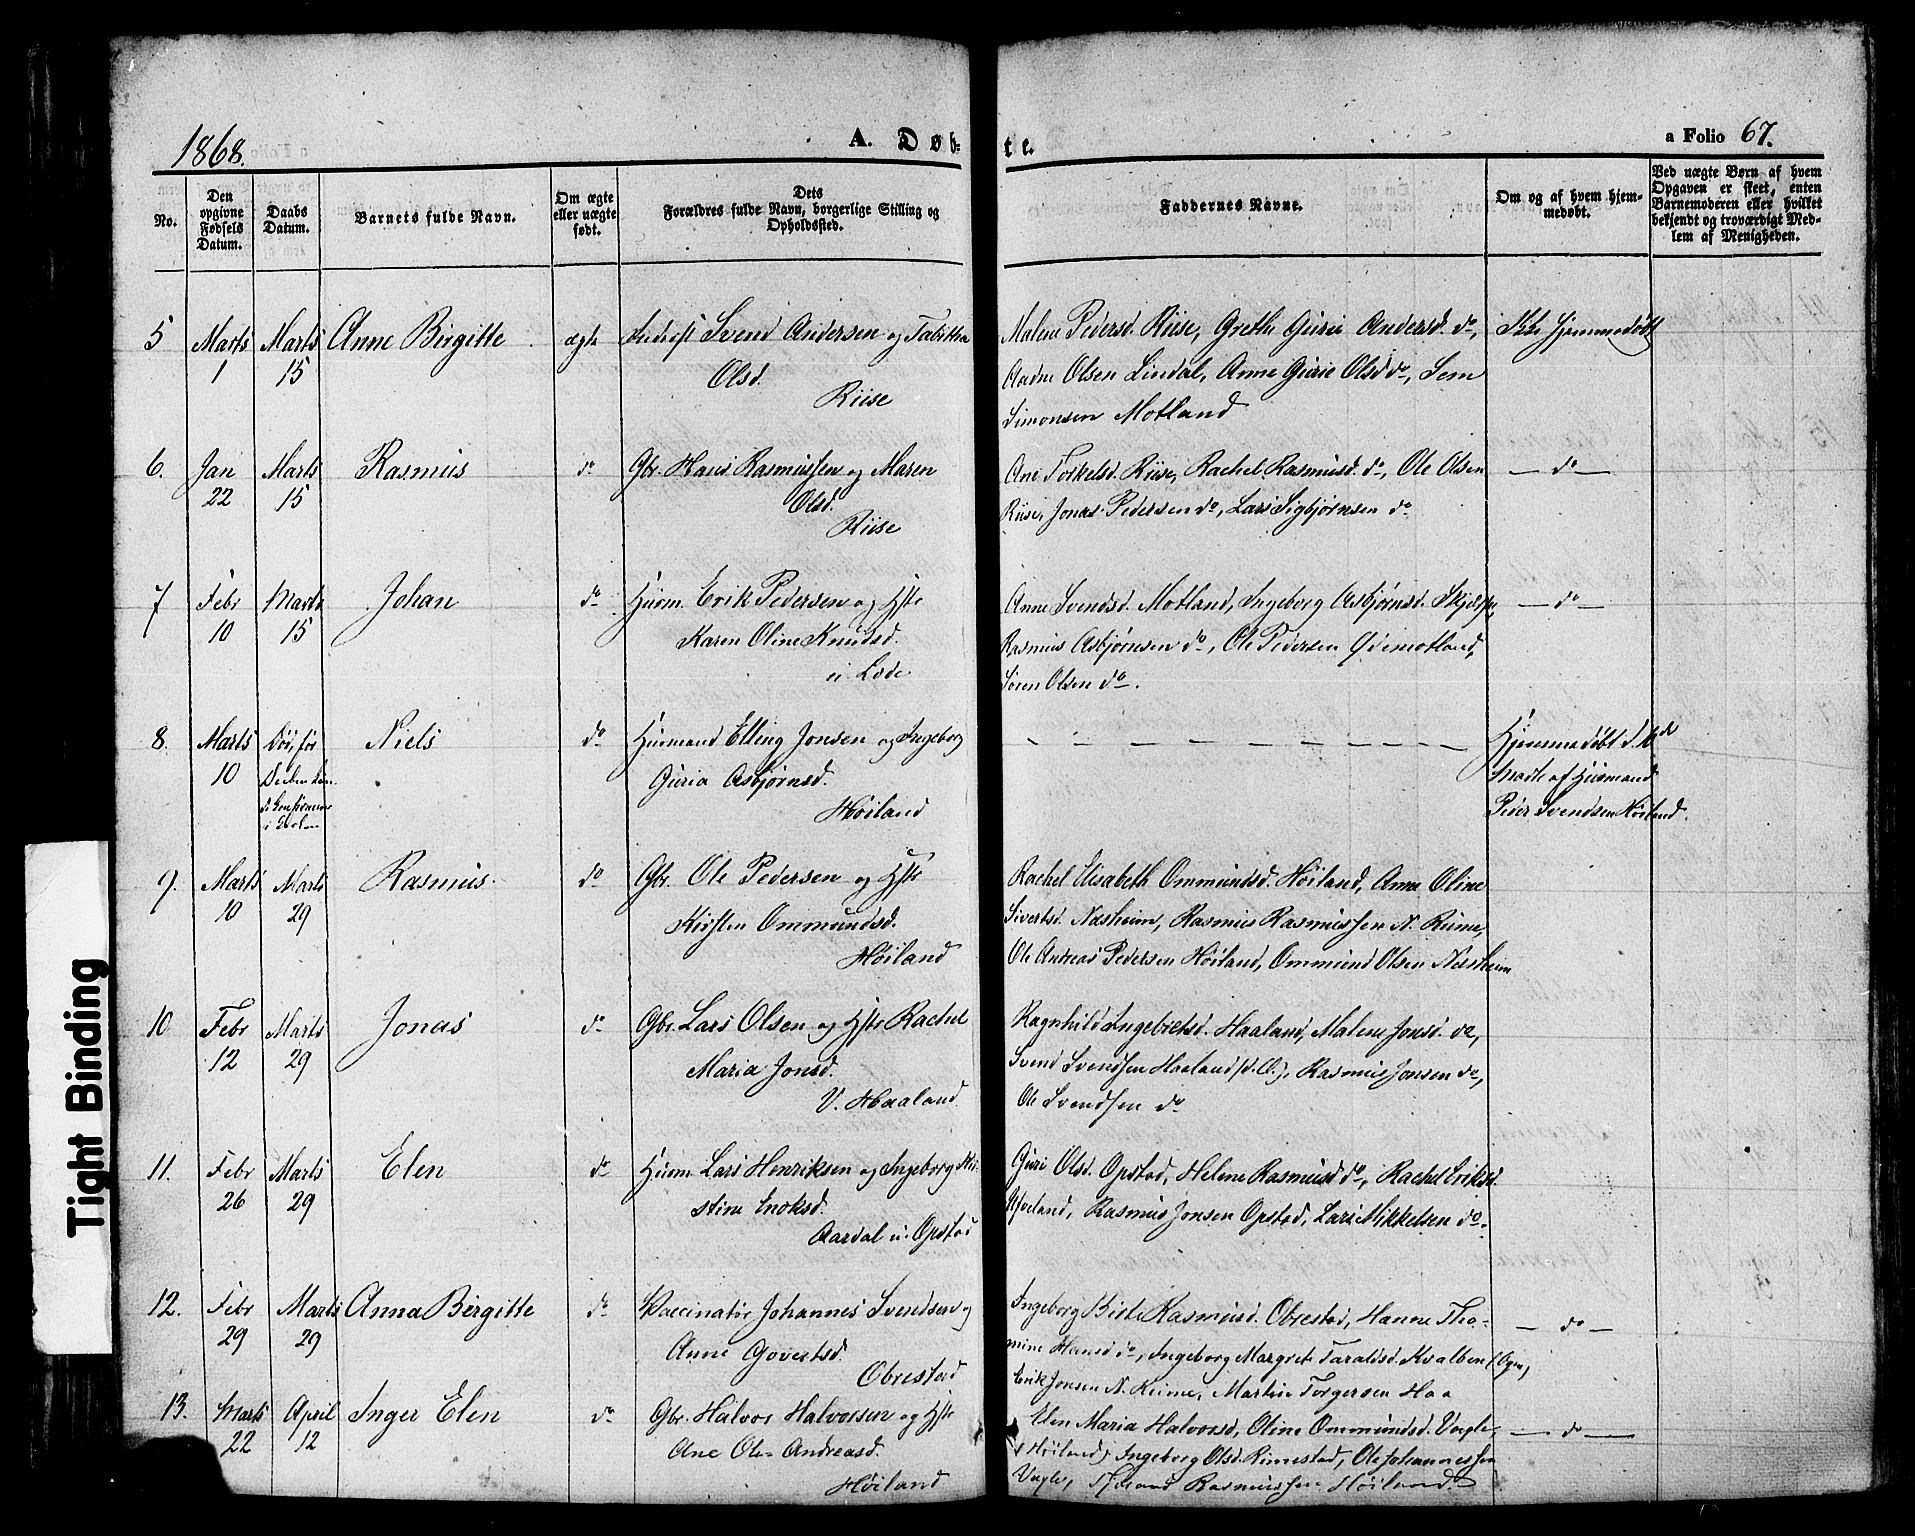 1868.
A. Døb-
te.
a Folio 67.
No.
Den opgivne Fødsels Datum.
Daabs Datum.
Barnets fulde Navn.
Om ægte eller uægte født.
Dets Forældres fulde Navn, borgerlige Stilling og Opholdssted.
Faddernes Navne.
Om og af hvem hjemmedøbt.
Ved uægte Børn af hvem Opgaven er skeet, enten Barnemoderen eller hvilket bekjendt og troværdigt Medlem af Menigheden.
5 Marts 1 Marts 15 Anne Birgitte ægte Svend Andersen og Tabitha
Olsd.
Riise
Malene Pedersd. Riise, Grethe Gurie Andersd. do,
Aadne Olsen Lindal, Anne Gurie Olsd do, Sem
Simonsen Motland
Ikke hjemmedøbt
6. Jan 22 Marts 15 Rasmus do Gbr. Hans Rasmussen og Maren
Olsd.
Riise
Ane Torkelsd. Riise, Rachel Rasmusd. do, Ole Olsen
Riise, Jonas Pedersen do, Lars Sigbjørnsen do
— do —
7 Febr 10 Marts 15 Johan do Husm. Erik Pedersen og Hstr
Karen Oline Knudsd.
u. Lode.
Anne Svendsd. Motland, Ingeborg Asbjørnsd.
Rasmus Asbjørnsen do, Ole Pedersen Øvi motland,
Søren Olsen do.
— do —
8. Marts 10 Døe før
i Kirken
Niels do Husmand Elling Jonsen og Ingeborg
Guria Asbjørnsd.
Høiland
Hjemmedøbt d. 10de
Marts af Husmand
Peder Svendsen Høiland.
9. Marts 10 Marts 29 Rasmus. do Gbr. Ole Pedersen og Hstr
Kirsten Ommundsd.
Høiland
Rachel Elisabeth Ommundsd. Høiland, Anne Oline
Sivertsd. Næsheim, Rasmus Rasmussen N. Riime,
Ole Andreas Pedersen Høiland, Ommund Olsen Næsheim
10 Febr 12 Marts 29 Jonas do Gbr. Lars Olsen og Hstr Rachel
Maria Jonsd.
V. Haaland
Ragnhild Ingebretsd. Haaland, Malene Jonsd. do,
Svend Svendsen Haaland, Rasmus Jonsen do,
Ole Svendsen do
11. Febr 26 Marts 29 Elen do Husm. Lars Henriksen og Ingeborg Kir-
stine Enoksd.
Aardal u. Opstad
Guri Olsd. Opstad, Helene Rasmusd do, Rachel Eriksd.
Rasmus Jonsen Opstad, Lars Mikkelsen do.
12. Febr 29 Marts 29 Anna Birgitte do Vaccinatør Johannes Svendsen og
Anne Govertsd.
Obrestad
Ingeborg Birte Rasmusd. Obrestad, Hanne Tho-
mine Hansd do, Ingeborg Margrete Taraldsd. Kvalben (Ogn,)
Erik Jonsen N. Reime, Martin Torgersen Haa
— do —
13. Marts 22 April 12 Inger Elen do Gbr. Halvor Halvorsen og Hstr
Ane Ole Andreasd.
Høiland
Elen Maria Halvorsd, Oline Ommundsd. Vagle,
(Høiland) Ingeborg Olsd. Rimestad, Ole Johannessen
Vagle, Rasmussen Høiland.
— do —
Tight Binding